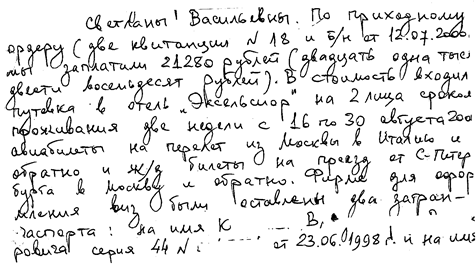 Светланы Васильевны. По приходному
ордеру (две квитанции N 18 и Б/н от 12.07.2000.
мы заплатили 21280 рублей (двадцать одна тыс
двести восемьдесят рублей). В стоимость входил
путёвка в отель „Эксельсиор" на 2 лица сроком
проживания две недели с 16 по 30 августа 200
авиабилеты на перелет из Москвы в Италию и
обратно и ж/д билеты на проезд от С-Петер
бурга в Москву и обратно. Фирме для офор
мления виз были оставлены два загран-
паспорта: на имя К В.
ровича серия 44 N от 23.06.1998 г. и на имя